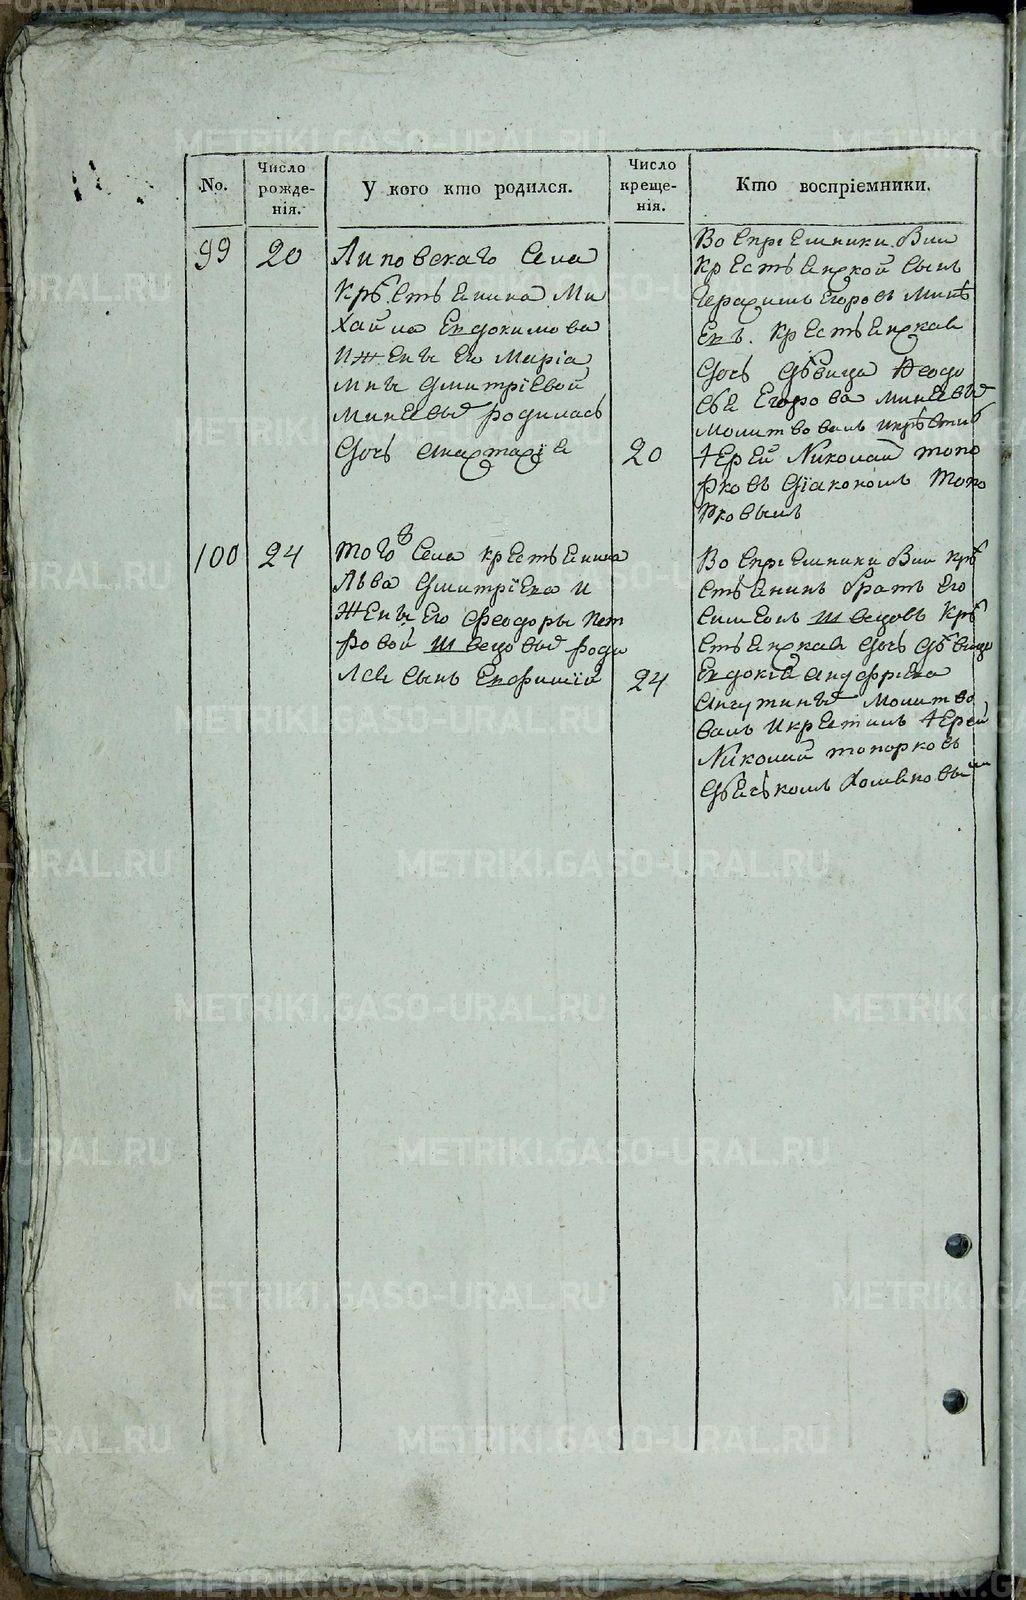 No.
Число рожде-нія.
У кого кто родился.
Число креще-нія.
Кто воспріемники.
99
20
Липовскаго Села
Крѣстьянина Ми
хайла Евдокимова
и Жены его Маріа
мны Дмитріевой
Минѣевы родилась
Дочь Анастасія
20
Воспріемники были
крестьянской сынъ
Герасимъ Егоровъ Минѣ
евъ. крестьянская
Дочь дѣвица Ѳеодо
сья Егорова Минѣевы
Молитвовалъ и крѣстилъ
Іерей Николай Топо
рковъ Діакономъ Топо
рковымъ
100
24
того Села крестьянина
Льва Дмитріева и
Жены Его Феодоры Пет
ровой Шведовы роди
лся Сынъ Евфимій
24
Воспріемники были крѣ
стьянинъ братъ его
Симеонъ Шведовъ крѣ
стьянская дочь дѣвица
Евдокія
Молитво
валъ и крестилъ Іерей
Николай Топорковъ
METRIKI.GASO-URAL.RU